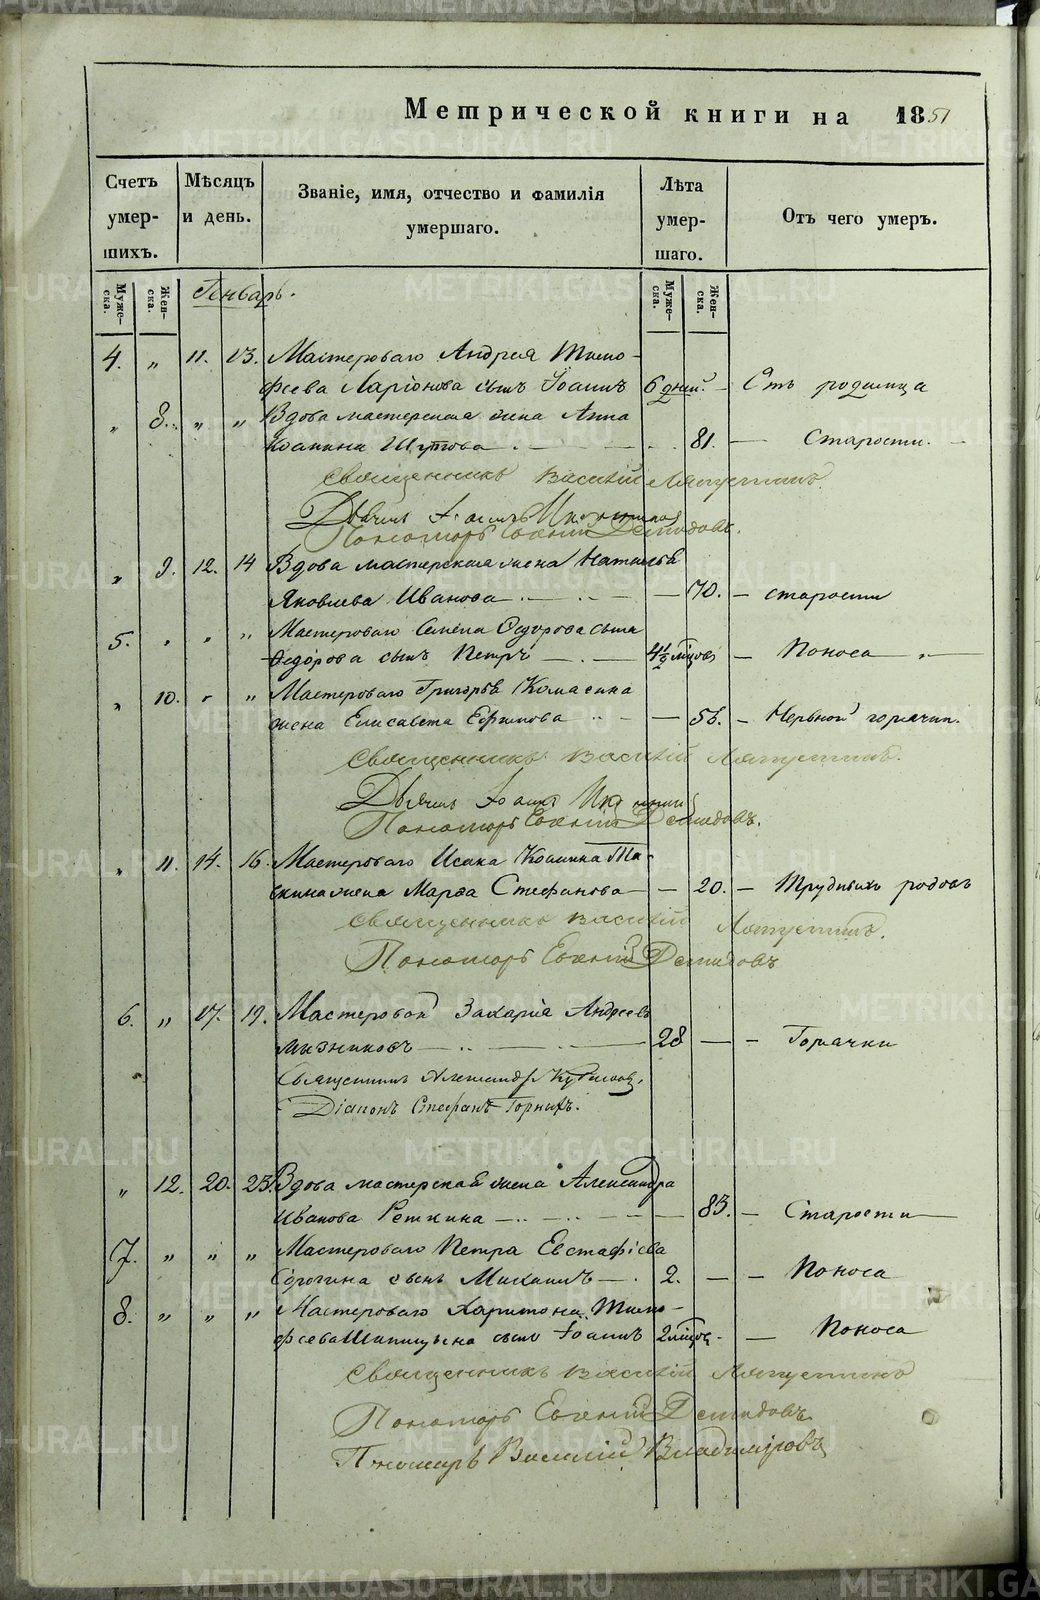 Метрической книги на 1851
Счетъ умершихъ. Мѣсяцъ и день. Званіе, имя, отчество и фамилія умершаго. Лѣта умершаго. Отъ чего умеръ.
Мужеска. Женска. Мужеска. Женска.
Генварь.
4. „ 11. 13. Мастероваго Андрея Тимо-
фѣева Ларіонова сынъ Іоаннъ 6 дней. Отъ родимца
„ 8. „ „ Вдова мастерская жена Анна
Іоаннина Шутова 81. Старости.
Священникъ Василій Ляпустинъ.
Дьячекъ Іоаннъ
Пономарь Евгеній Демидовъ.
„ 9. 12. 14 Вдова мастерская жена Наталья
Яковлева Иванова 70. старости
5. „ „ „ Мастероваго Семена Ѳедорова сына
Ѳедорова сынъ Петръ 4½ мѣсяцовъ Поноса
„ 10. „ „ Мастероваго Григорья Комасина
жена Елисавета Ефимова 56. Нервной горячки.
Священникъ Василій Ляпустинъ.
Дьячекъ Іоаннъ
Пономарь Евгеній Демидовъ.
„ 11. 14. 16. Мастероваго Исака
жена Марѳа Стефанова 20. Трудныхъ родовъ
Священникъ Василій Ляпустинъ.
Пономарь Евгеній Демидовъ
6. „ 17. 19. Мастеровой Захарія Андреевъ
Мызниковъ 28 Горячки
Священникъ Александръ
Діаконъ Стефанъ Горныхъ.
„ 12. 20. 23. Вдова мастерская жена Александра
Иванова Реткина 83. Старости
7. „ „ „ Мастероваго Петра Евстафіева
сынъ Михаилъ 2. Поноса
8. „ „ „ Мастероваго Харитона Тимо-
фѣева Шипицына сынъ Іоаннъ 2 мѣсяц. Поноса
Священникъ Василій Ляпустинъ
Пономарь Евгеній Демидовъ
Пономарь Василій Владиміровъ
METRIKI.GASO-URAL.RU